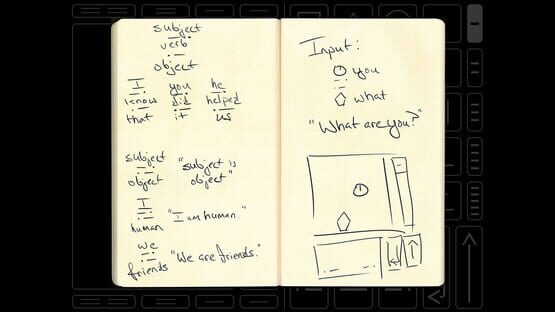 subject
verb
object
I you he
know did helped
that it us
subject "subject is
object object"
I
human "I am human."
we
friends "We are friends."
Input:
you
what
"What are you?"